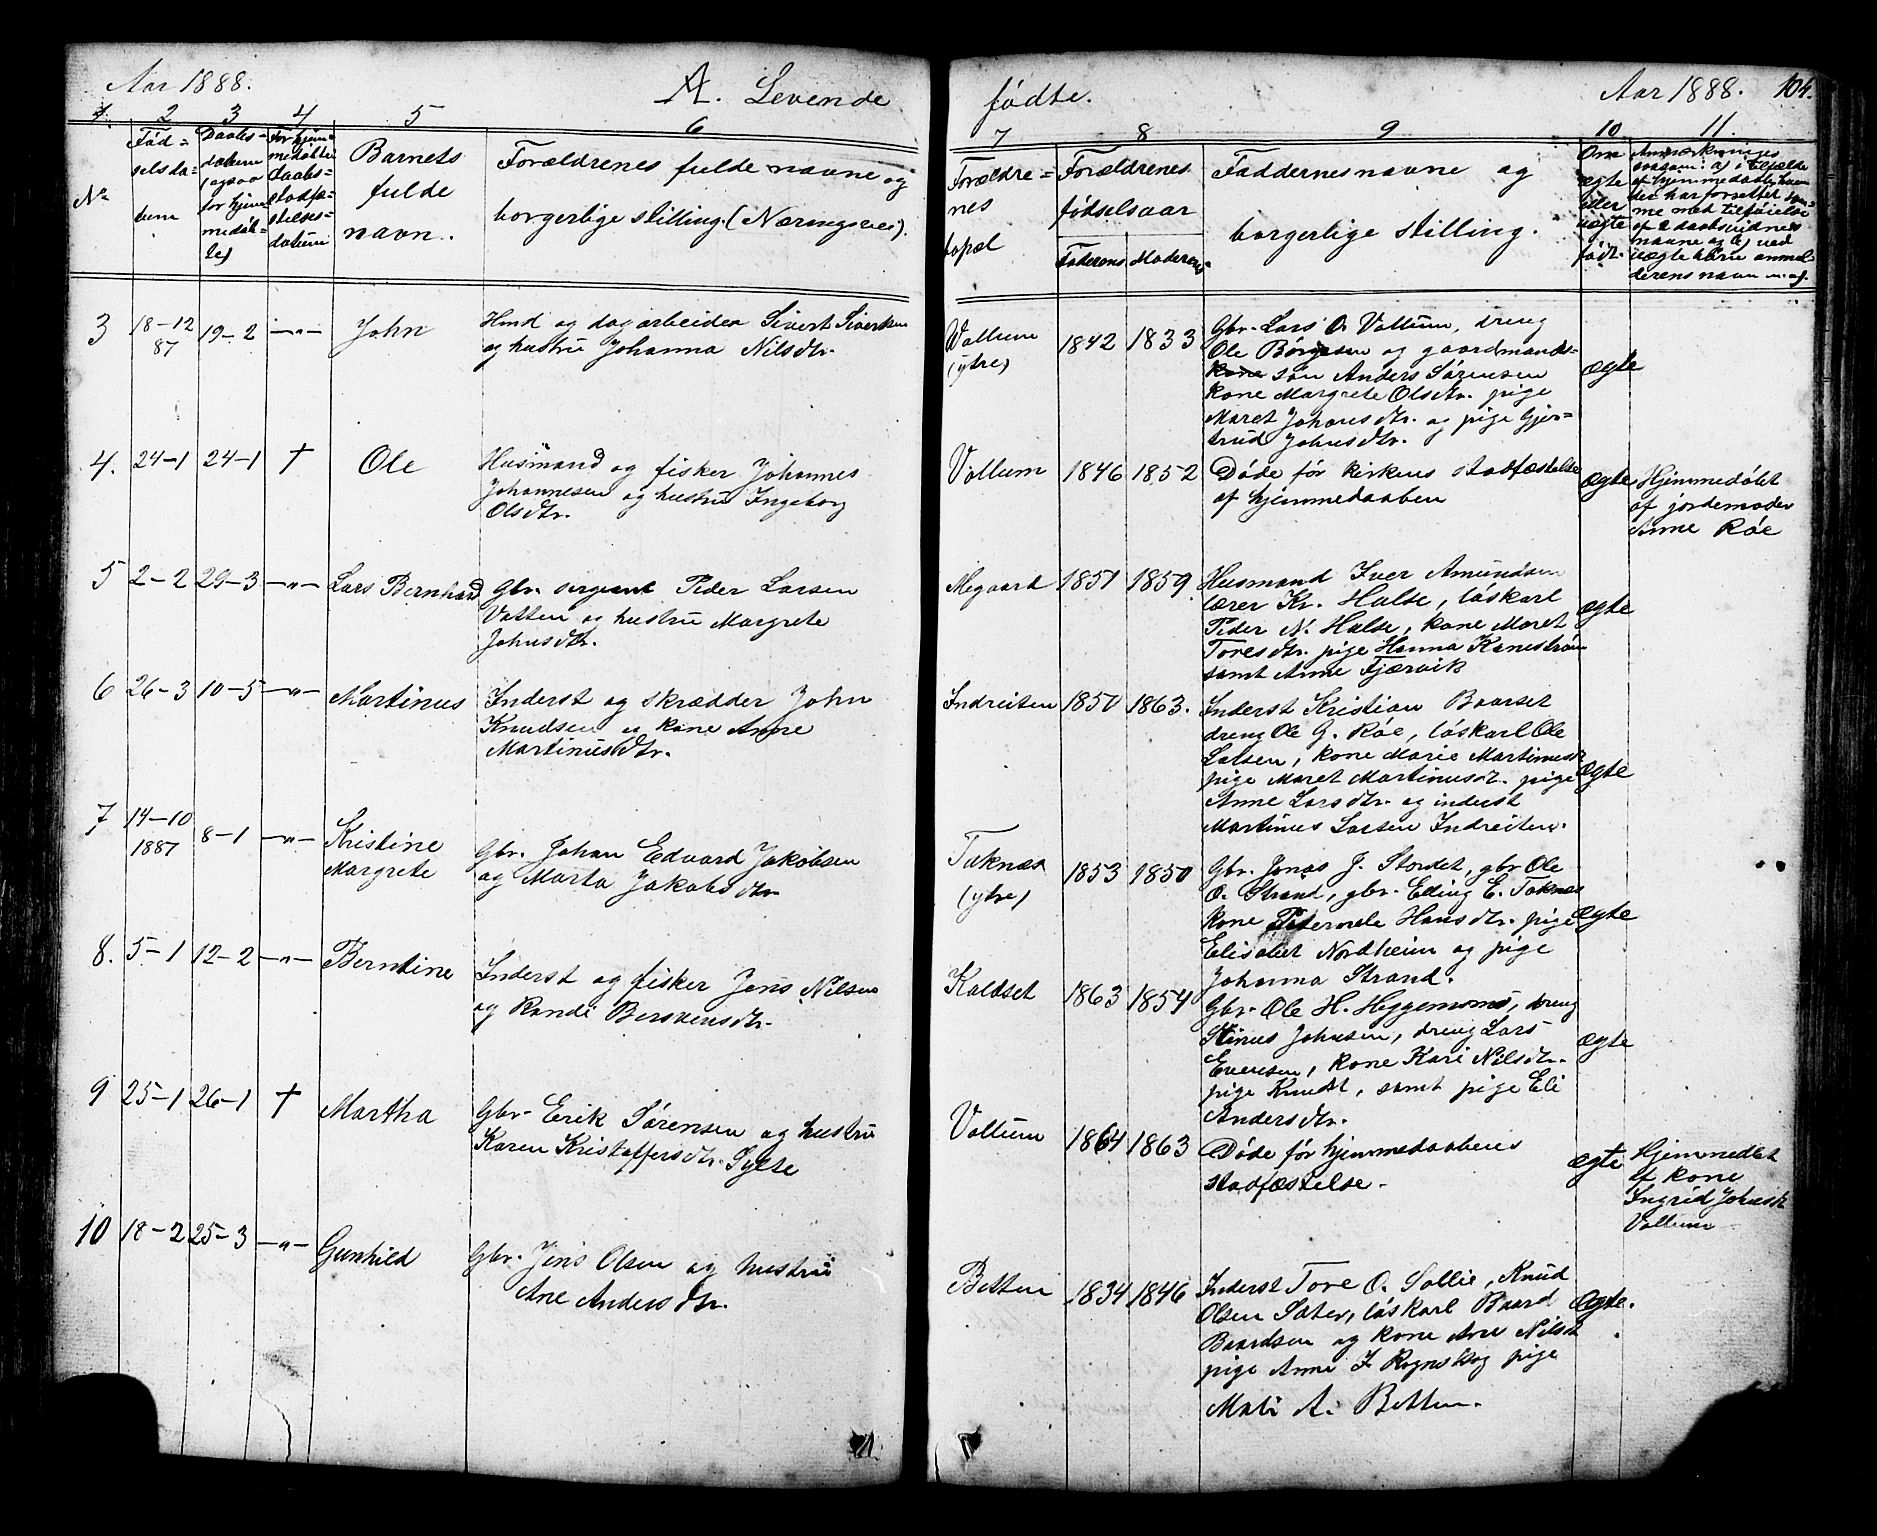 Aar 1888.
A. Levende
fødte.
Aar 1888. 104.
1. 2 3 4 5 6
7 8 9 10 11.
No
Fød=
selsda=
tum
Daabs=
datum
(ogsaa
for hjem
medøb=
te)
For hjem=
medøbte
daabs=
stadfæ=
stelses=
datum
Barnets
fulde
navn.
Forældrenes fulde navne og
borgerlige stilling (Næringsvei).
Forældre=
nes
bopæl
Forældrenes
fødselsaar
Faderens Moderens
Faddernes navne og
borgerlige stilling.
Om
ægte
eller
uægte
født.
Anmærkninger
saasom: a) i tilfælde
af hjemmedaab, hvem
der har forrettet sam=
me med tilføielse
af 2 daabsvidners
navne og b) ved
uægte børn anmel=
derens navn m. v.
3 18–12
87
19–2 —„— John
Hmd og dagarbeider Sivert Sivertsen
og hustru Johanna Nilsdtr.
Vollum
(ytre)
1842 1833
Gbr. Lars O. Vollum, dreng
Ole Børgesen og gaardmands=
kone søn Anders Sørensen
kone Margrete Olsdtr. pige
Maret Johnsdtr. og pige Gjer=
trud Johnsdtr.
ægte
4. 24–1 24–1 † Ole
Husmand og fisker Johannes
Johannesen og hustru Ingeborg
Olsdtr.
Vollum 1846 1852
Døde før kirkens stadfæstelse
af hjemmedaaben
ægte
Hjemmedøbt
af jordemoder
Anne Røe
5 2–2 29–3 —„— Lars Bernhard
Gbr. sergeant Peder Larsen
Vatten og hustru Margrete
Johnsdtr.
Megaard 1851 1859
Husmand Iver Amundsen
lærer Kr. Halse, løskarl
Peder N. Halse, kone Maret
Toresdtr. pige Hanna Kanestrøm
samt Anne Fjærvik
ægte
6 26–3 10–5 —„— Martinus
Inderst og skrædder John
Knudsen og kone Anne
Martinusdtr.
Indreiten 1850 1863.
Inderst Kristian Baarset
dreng Ole G. Røe, løskarl Ole
Larsen, kone Marie Martinusdr
pige Maret Martinusdt. pige
Anne Larsdtr. og inderst
Martinus Larsen Indreiten.
ægte
7 14–10
1887
8–1 —„— Kristine
Margrete
Gbr. Johan Edvard Jakobsen
og Marta Jakobsdtr.
Taknæs
(ytre)
1853 1850
Gbr. Jonas J. Stordet, gbr. Ole
O. Strand, gbr. Elling E. Taknæs
kone Petternele Hansdtr. pige
Elisabet Nordheim og pige
Johanna Strand.
ægte
8. 5–1 12–2 —„— Berntine
Inderst og fisker Jens Nilsen
og Randi Bersvensdtr.
Koldset 1863 1854
Gbr. Ole H. Heggemsnes, dreng
Stinus Johnsen, dreng Lars
Evensen, kone Kari Nilsdtr.
pige Knudt, samt pige Eli
Andersdtr.
ægte
9 25–1 26–1 † Martha
Gbr. Erik Sørensen og hustru
Karen Kristoffersdtr. Sylte
Vollum 1864 1863
Døde før hjemmedaabens
stadfæstelse.
ægte
Hjemmedbt
af kone
Ingrid Johnsdt
Vollum
10 18–2 25–3 —„— Gunhild
Gbr. Jens Olsen og hustru
Ane Andersdtr.
Betten 1834 1846
Inderst Tore O. Sollie, Knud
Olsen Sæter, løskarl Baard
Baardsen og kone Ane Nilsdt
pige Anne J Rognskog pige
Mali A. Betten.
ægte.